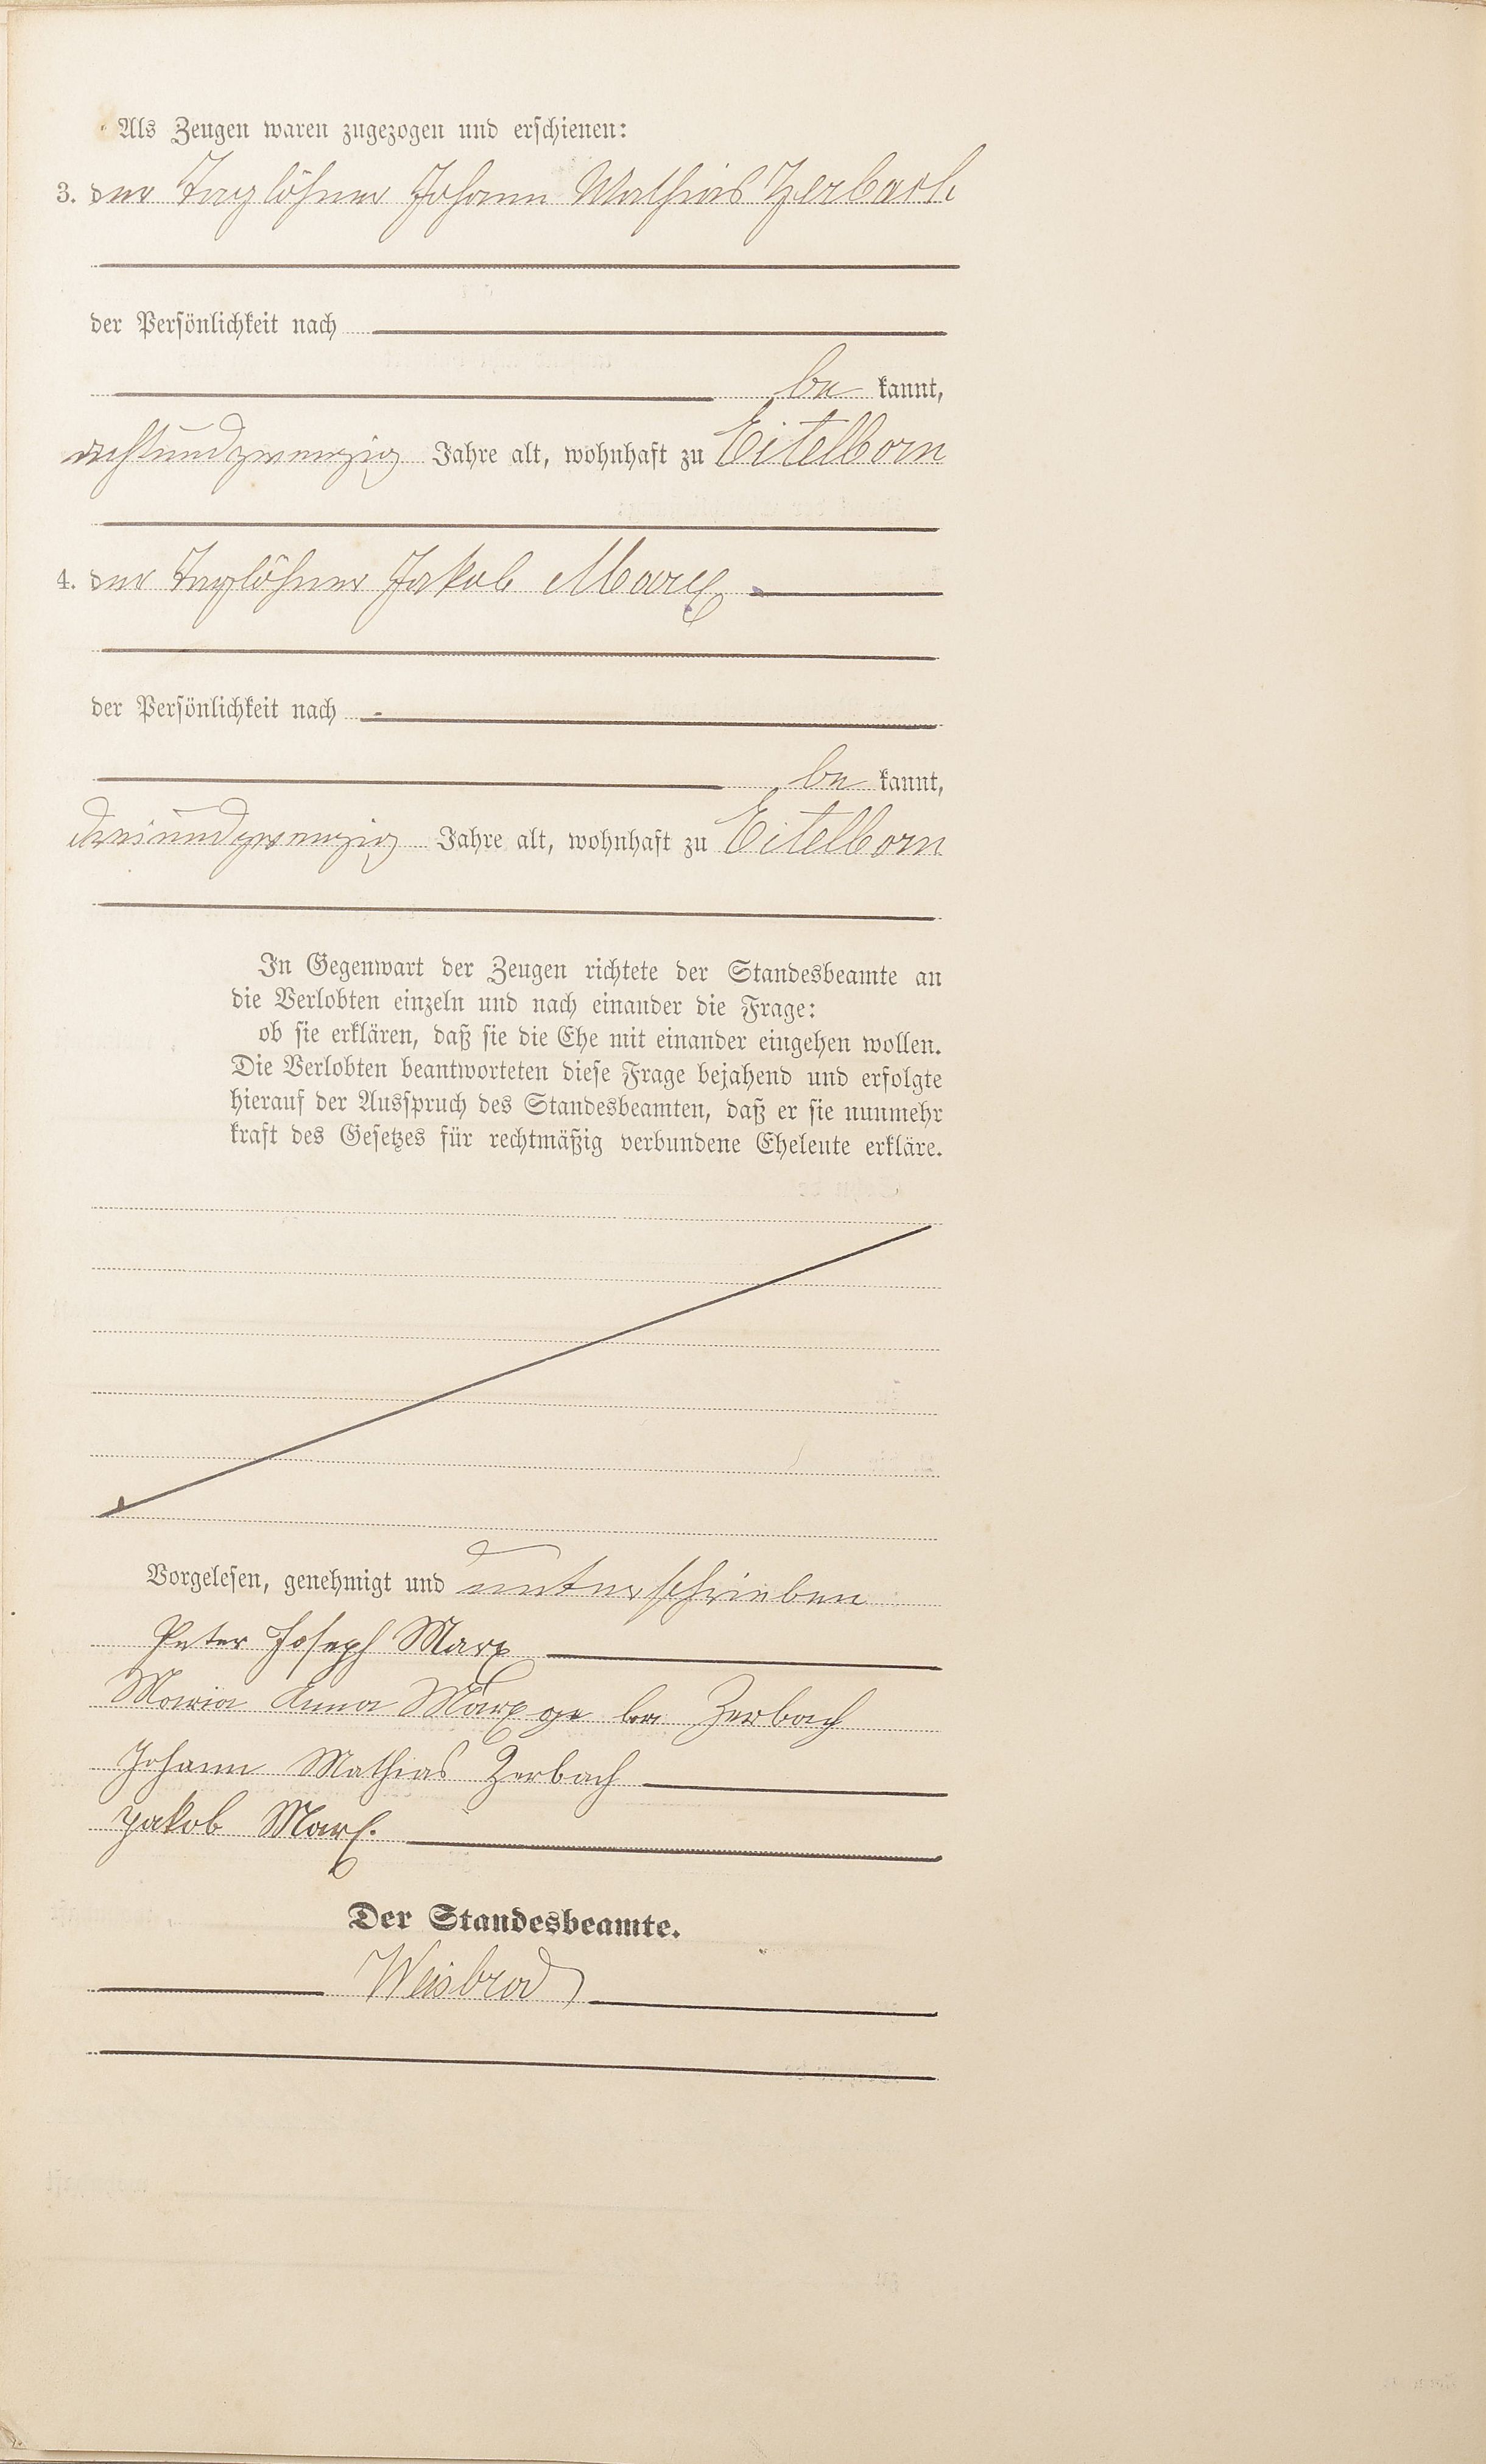 Als Zeugen waren zugezogen und erschienen:
3. der Taglöhner Johann Mathias Zerbach
der Persönlichkeit nach
be kannt,
achtundzwanzig Jahre alt, wohnhaft zu Eitelborn
4. der Taglöhner Jakob Marx
der Persönlichkeit nach
be kannt,
dreiundzwanzig Jahre alt, wohnhaft zu Eitelborn
In Gegenwart der Zeugen richtete der Standesbeamte an
die Verlobten einzeln und nach einander die Frage:
ob sie erklären, daß sie die Ehe mit einander eingehen wollen.
Die Verlobten beantworteten diese Frage bejahend und erfolgte
hierauf der Ausspruch des Standesbeamten, daß er sie nunmehr
kraft des Gesetzes für rechtmäßig verbundene Eheleute erkläre.
Vorgelesen, genehmigt und unterschrieben
Peter Joseph Marx
Maria Anna Marx ge bor Zerbach
Johann Mathias Zerbach
Jakob Marx.
Der Standesbeamte.
Weisbrod